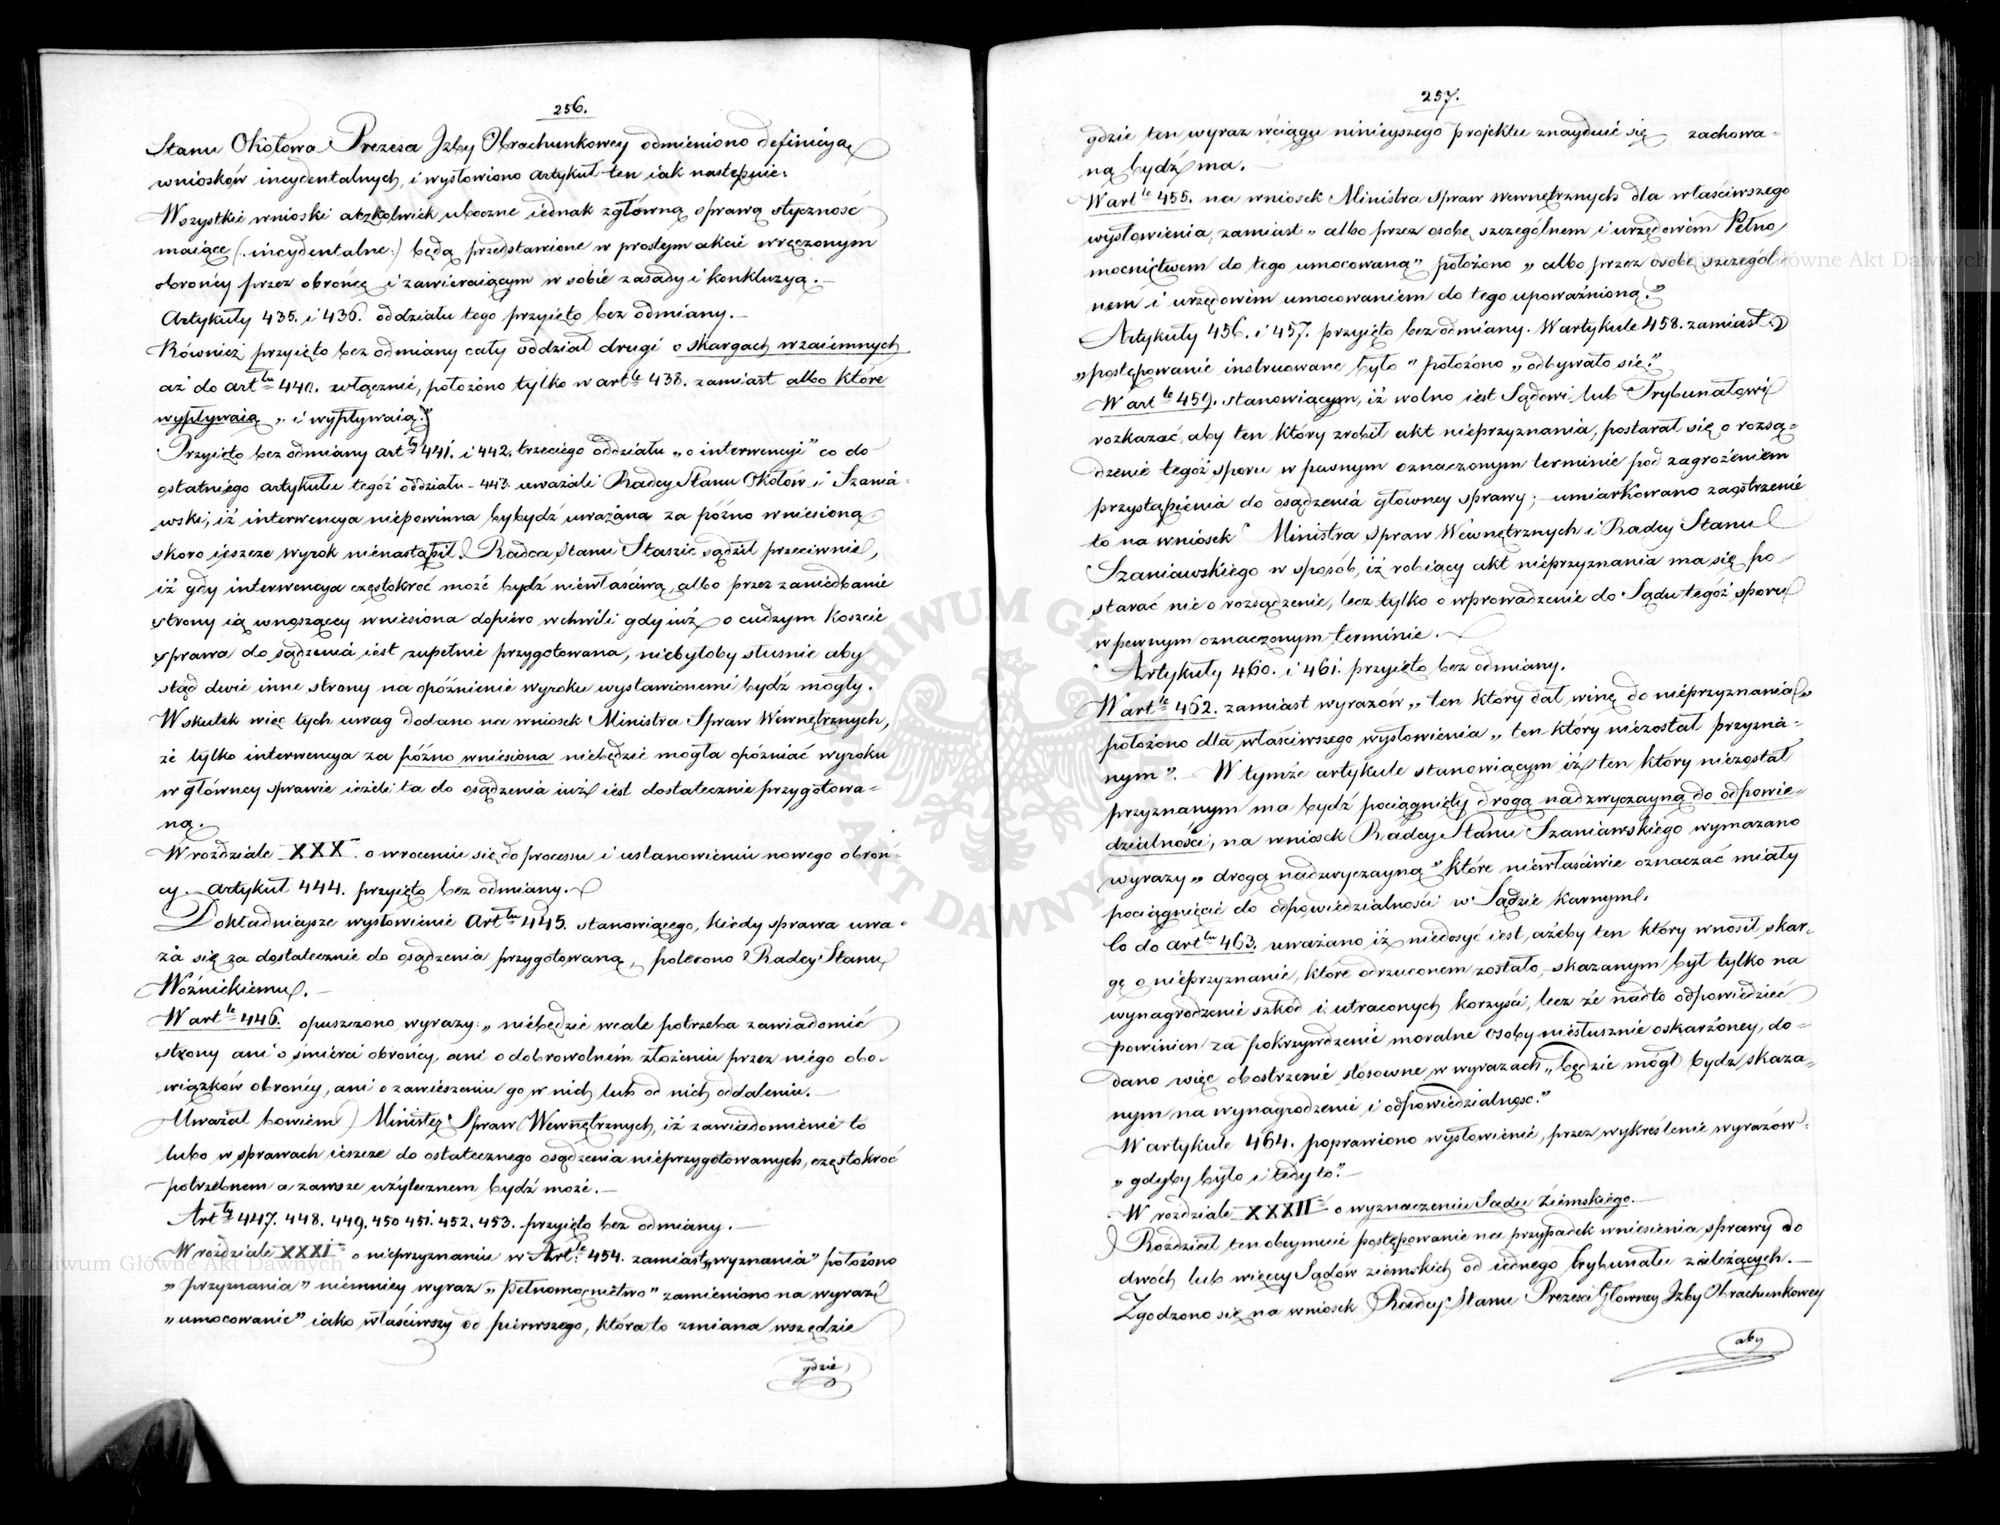 256.
Stanu Okołowa Prezesa Izby Obrachunkowey odmieniono definicyą
wniosków incydentalnych, i wysłowiono artykuł ten iak następuie:
Wszystkie wnioski aczkolwiek uboczne iednak z główną sprawą styczność
maiące (: incydentalne :) będą przedstawione w prostym akcie wręczonym
obrońcy przez obrońcę i zawieraiącym w sobie zasady i konkluzyą. —
Artykuły 435. i 436. oddziału tego przyięto bez odmiany. —
Również przyięto bez odmiany cały oddział drugi o skargach wzaiemnych
aż do art<sup>łu</sup> 440. włącznie, położono tylko w art<sup>le</sup> 438. zamiast albo które
wypływaią „ i wypływaią."
Przyięto bez odmiany art<sup>ły</sup> 441. i 442. trzeciego oddziału „o interwencyi" co do
ostatniego artykułu tegóż oddziału - 443. uważali Radcy Stanu Okołów i Szania-
wski, iż interwencya niepowinna bybydź uważana za późno wniesioną
skoro ieszcze wyrok nienastąpił. Radca Stanu Staszic sądził przeciwnie,
iż gdy interwencya częstokroć może bydź niewłaściwą, albo przez zaniedbanie
strony ią wnoszącey wniesiona dopiero w chwili gdy iuż o cudzym koszcie
sprawa do sądzenia iest zupełnie przygotowana, niebyłoby słusznie aby
stąd dwie inne strony na opóźnienie wyroku wystawionemi bydź mogły.
W skutek więc tych uwag dodano na wniosek Ministra Spraw Wewnętrznych,
że tylko interwencya za późno wniesiona niebędzie mogła opóźniać wyroku
w główney sprawie ieżeli ta do osądzenia iuż iest dostatecznie przygotowa-
ną.
W rozdziale XXX. o wroceniu się do processu i ustanowieniu nowego obroń-
cy. Artykuł 444. przyięto bez odmiany. —
Dokładnieysze wysłowienie Art<sup>łu</sup> 445. stanowiącego, kiedy sprawa uwa-
ża się za dostatecznie do osądzenia przygotowaną, polecono Radcy Stanu
Woźnickiemu. —
W art<sup>le</sup> 446. opuszczono wyrazy: „ niebędzie wcale potrzeba zawiadomić
strony ani o śmierci obrońcy, ani o dobrowolném złożeniu przez niego obo-
wiązków obrońcy, ani o zawieszeniu go w nich lub od nich oddaleniu. —
Uważał bowiem Minister Spraw Wewnętrznych, iż zawiadomienie to
lubo w sprawach ieszcze do ostatecznego osądzenia nieprzygotowanych, częstokroć
potrzebnem a zawsze użytecznem bydź może. —
Art<sup>ły</sup> 447. 448. 449. 450 451. 452. 453. przyięto bez odmiany. —
W rozdziale XXXI o nieprzyznaniu w Art<sup>le</sup> 454. zamiast „wyznania" położono
„ przyznania" niemniey wyraz „ pełnomocnictwo" zamieniono na wyraz
„umocowanie" iako właściwszy od pierwszego, która to zmiana wszędzie
gdzie
257.
gdzie ten wyraz wciągu ninieyszego projektu znayduie się zachowa-
ną bydź ma. —
W art<sup>le</sup> 455. na wniosek Ministra Spraw Wewnętrznych dla właściwszego
wysłowienia, zamiast „ albo przez osobę szczególnem i urzędowém Pełno
mocnictwem do tego umocowaną" położono „ albo przez osobę szczegól-
nem i urzędowém umocowaniem do tego upoważnioną."
Artykuły 456. i 457. przyięto bez odmiany. W artykule 458. zamiast
„postępowanie instruowane było" położono „ odbywało się."
W art<sup>le</sup> 459. stanowiącym, iż wolno iest Sądowi lub Trybunałowi
rozkazać, aby ten który zrobił akt nieprzyznania, postarał się o rozsą-
dzenie tegóż sporu w pewnym oznaczonym terminie pod zagrożeniem
przystąpienia do osądzenia główney sprawy; - umiarkowano zaostrzenie
to na wniosek Ministra Spraw Wewnętrznych i Radcy Stanu
Szaniawskiego w sposób, iż robiący akt nieprzyznania ma się po-
starać nie o rozsądzenie, lecz tylko o wprowadzenie do Sądu tegóż sporu
w pewnym oznaczonym terminie.
Artykuły 460. i 461. przyięto bez odmiany.
W art<sup>le</sup> 462. zamiast wyrazów „ ten który dał winę do nieprzyznania"
położono dla właściwszego wysłowienia „ ten który niezostał przyzna-
nym". — W tymże artykule stanowiącym iż ten który niezostał
przyznanym ma bydź pociągnięty drogą nadzwyczayną do odpowie-
dzialności, na wniosek Radcy Stanu Szaniawskiego wymazano
wyrazy „ drogą nadzwyczayną" które niewłaściwie oznaczać miały
pociągnięcie do odpowiedzialności w Sądzie karnym.
Co do art<sup>łu</sup> 463. uważano, iż niedosyć iest, ażeby ten który wnosił skar-
gę o nieprzyznanie, które odrzuconem zostało, skazanym był tylko na
wynagrodzenie szkód i utraconych korzyści, lecz że nadto odpowiedzieć
powinien za pokrzywdzenie moralne osoby niesłusznie oskarżoney, do-
dano więc obostrzenie stosowne w wyrazach „będzie mógł bydź skaza-
nym na wynagrodzenie i odpowiedzialność."
W artykule 464. poprawiono wysłowienie, przez wykreślenie wyrazów
„ gdyby było i tedy to." —
W rozdziale XXXII o wyznaczeniu Sądu Ziemskiego. —
Rozdział ten obeymuie postępowanie na przypadek wniesienia sprawy do
dwóch lub więcey Sądów ziemskich od iednego trybunału zależących. —
Zgodzono się na wniosek Radcy Stanu Prezesa Główney Izby Obrachunkowey
aby
Archiwum Główne Akt Dawnych
Archiwum Główne Akt Dawnych
ARCHIWUM GŁÓWNE AKT DAWNYCH